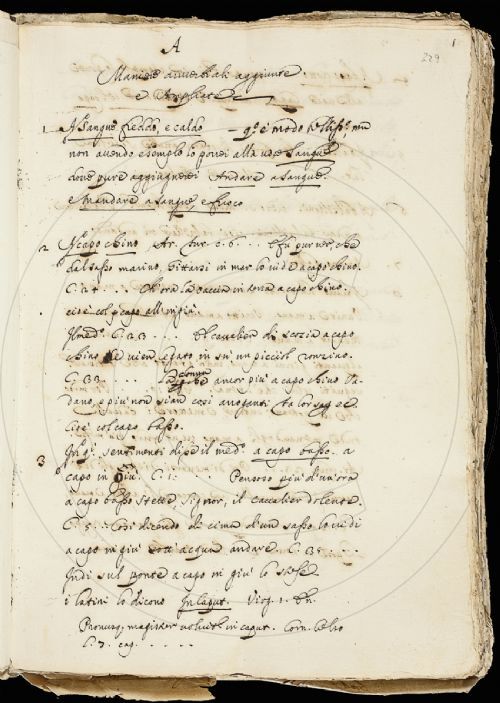 A
1
229
Maniere avverbiali aggiunte
e Ampliate
1 A Sangue freddo, e caldo — q.o è modo belliss.o ma
non avendo esemplo lo porrei alla voce Sangue
dove pure aggiugnerei Andare a Sangue.
e Mandare a Sangue, e fuoco
2 A capo chino. Ar. Fur. c. 6... E fu pur ver, che
dal sasso marino, Gittarsi in mar lo vide a capo chino.
C. 24 .... Ch'ora la caccia in terra a capo chino.
cioè col capo all'ingiù.
Il med.o C. 23 .... Il cavalier di Scozia a capo
chino vien legato in su un picciol ronzino.
C. 32 .... donna ancor più a capo chino va
dano, e più non sian così arroganti
Cioè col capo basso.
3 In q.i sentimenti disse il med.o a capo basso. a
capo in giù. C. 1. .... Pensoso più d'un'ora
a capo basso Stette, Signor, il cavalier dolente.
C. 5.. Così dicendo di cima d'un sasso lo vidi
a capo in giù sott'acqua andare. C. 31 ....
Indi sul ponte a capo in giù lo
i latini lo dicono In caput. Virg. 1. En.
Pronusq, magister volvitur in caput. Corn. Celso
L. 7. cap. .....